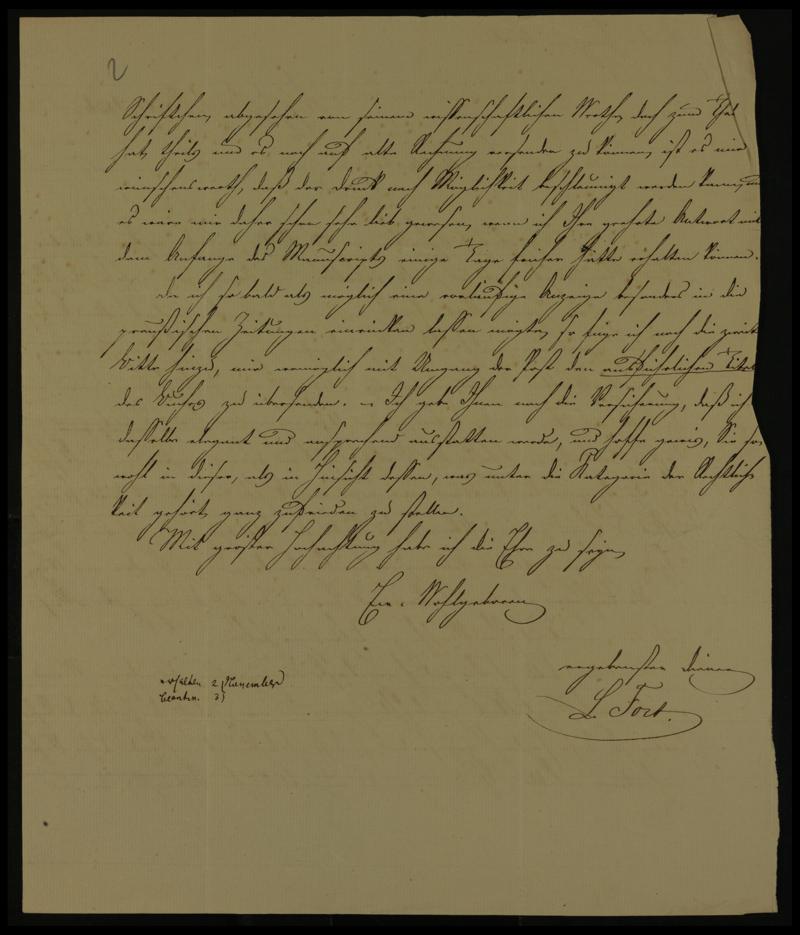 2
Schriftchen, abgesehen von seinem wissenschaftlichen Werthe, doch zum Theil
hat, theils um es noch auf alte Rechnung versenden zu können, ist es mir
wünschenswerth, daß der Druck nach Möglichkeit beschleunigt werden kann, und
es wäre mir daher schon sehr lieb gewesen, wenn ich Ihre geehrte Antwort mit
dem Anfange des Manuscripts einige Tage früher hätte erhalten können.
Da ich so bald als möglich eine vorläufige Anzeige besonders in die
preußischen Zeitungen einrücken lassen mögte, so füge ich noch die zweite
Bitte hinzu, mir womöglich mit Umgang der Post den ausführlichen Titel
des Buches zu übersenden. – Ich gebe Ihnen noch die Versicherung, daß ich
dasselbe elegant und ansprechend ausstatten werde, und hoffe gewis, Sie so
wohl in dieser, als in Hinsicht dessen, was unter die Kategorie der Rechtlich
keit gehört, ganz zufrieden zu stellen.
Mit größter Hochachtung habe ich die Ehre zu seyn
Ew. Wohlgeboren
ergebenster Diener
L. Fort.
erhalten 2 November
beantw. 3)